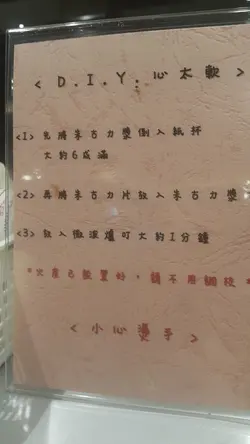 < D.I.Y. 心太軟 >
<1> 先將朱古力漿倒入紙杯
大約6成滿
<2> 再將朱古力片放入朱古力漿
<3> 放入微波爐叮大約1分鐘
*火度已設置好，請不用調校*
< 小心燙手 >